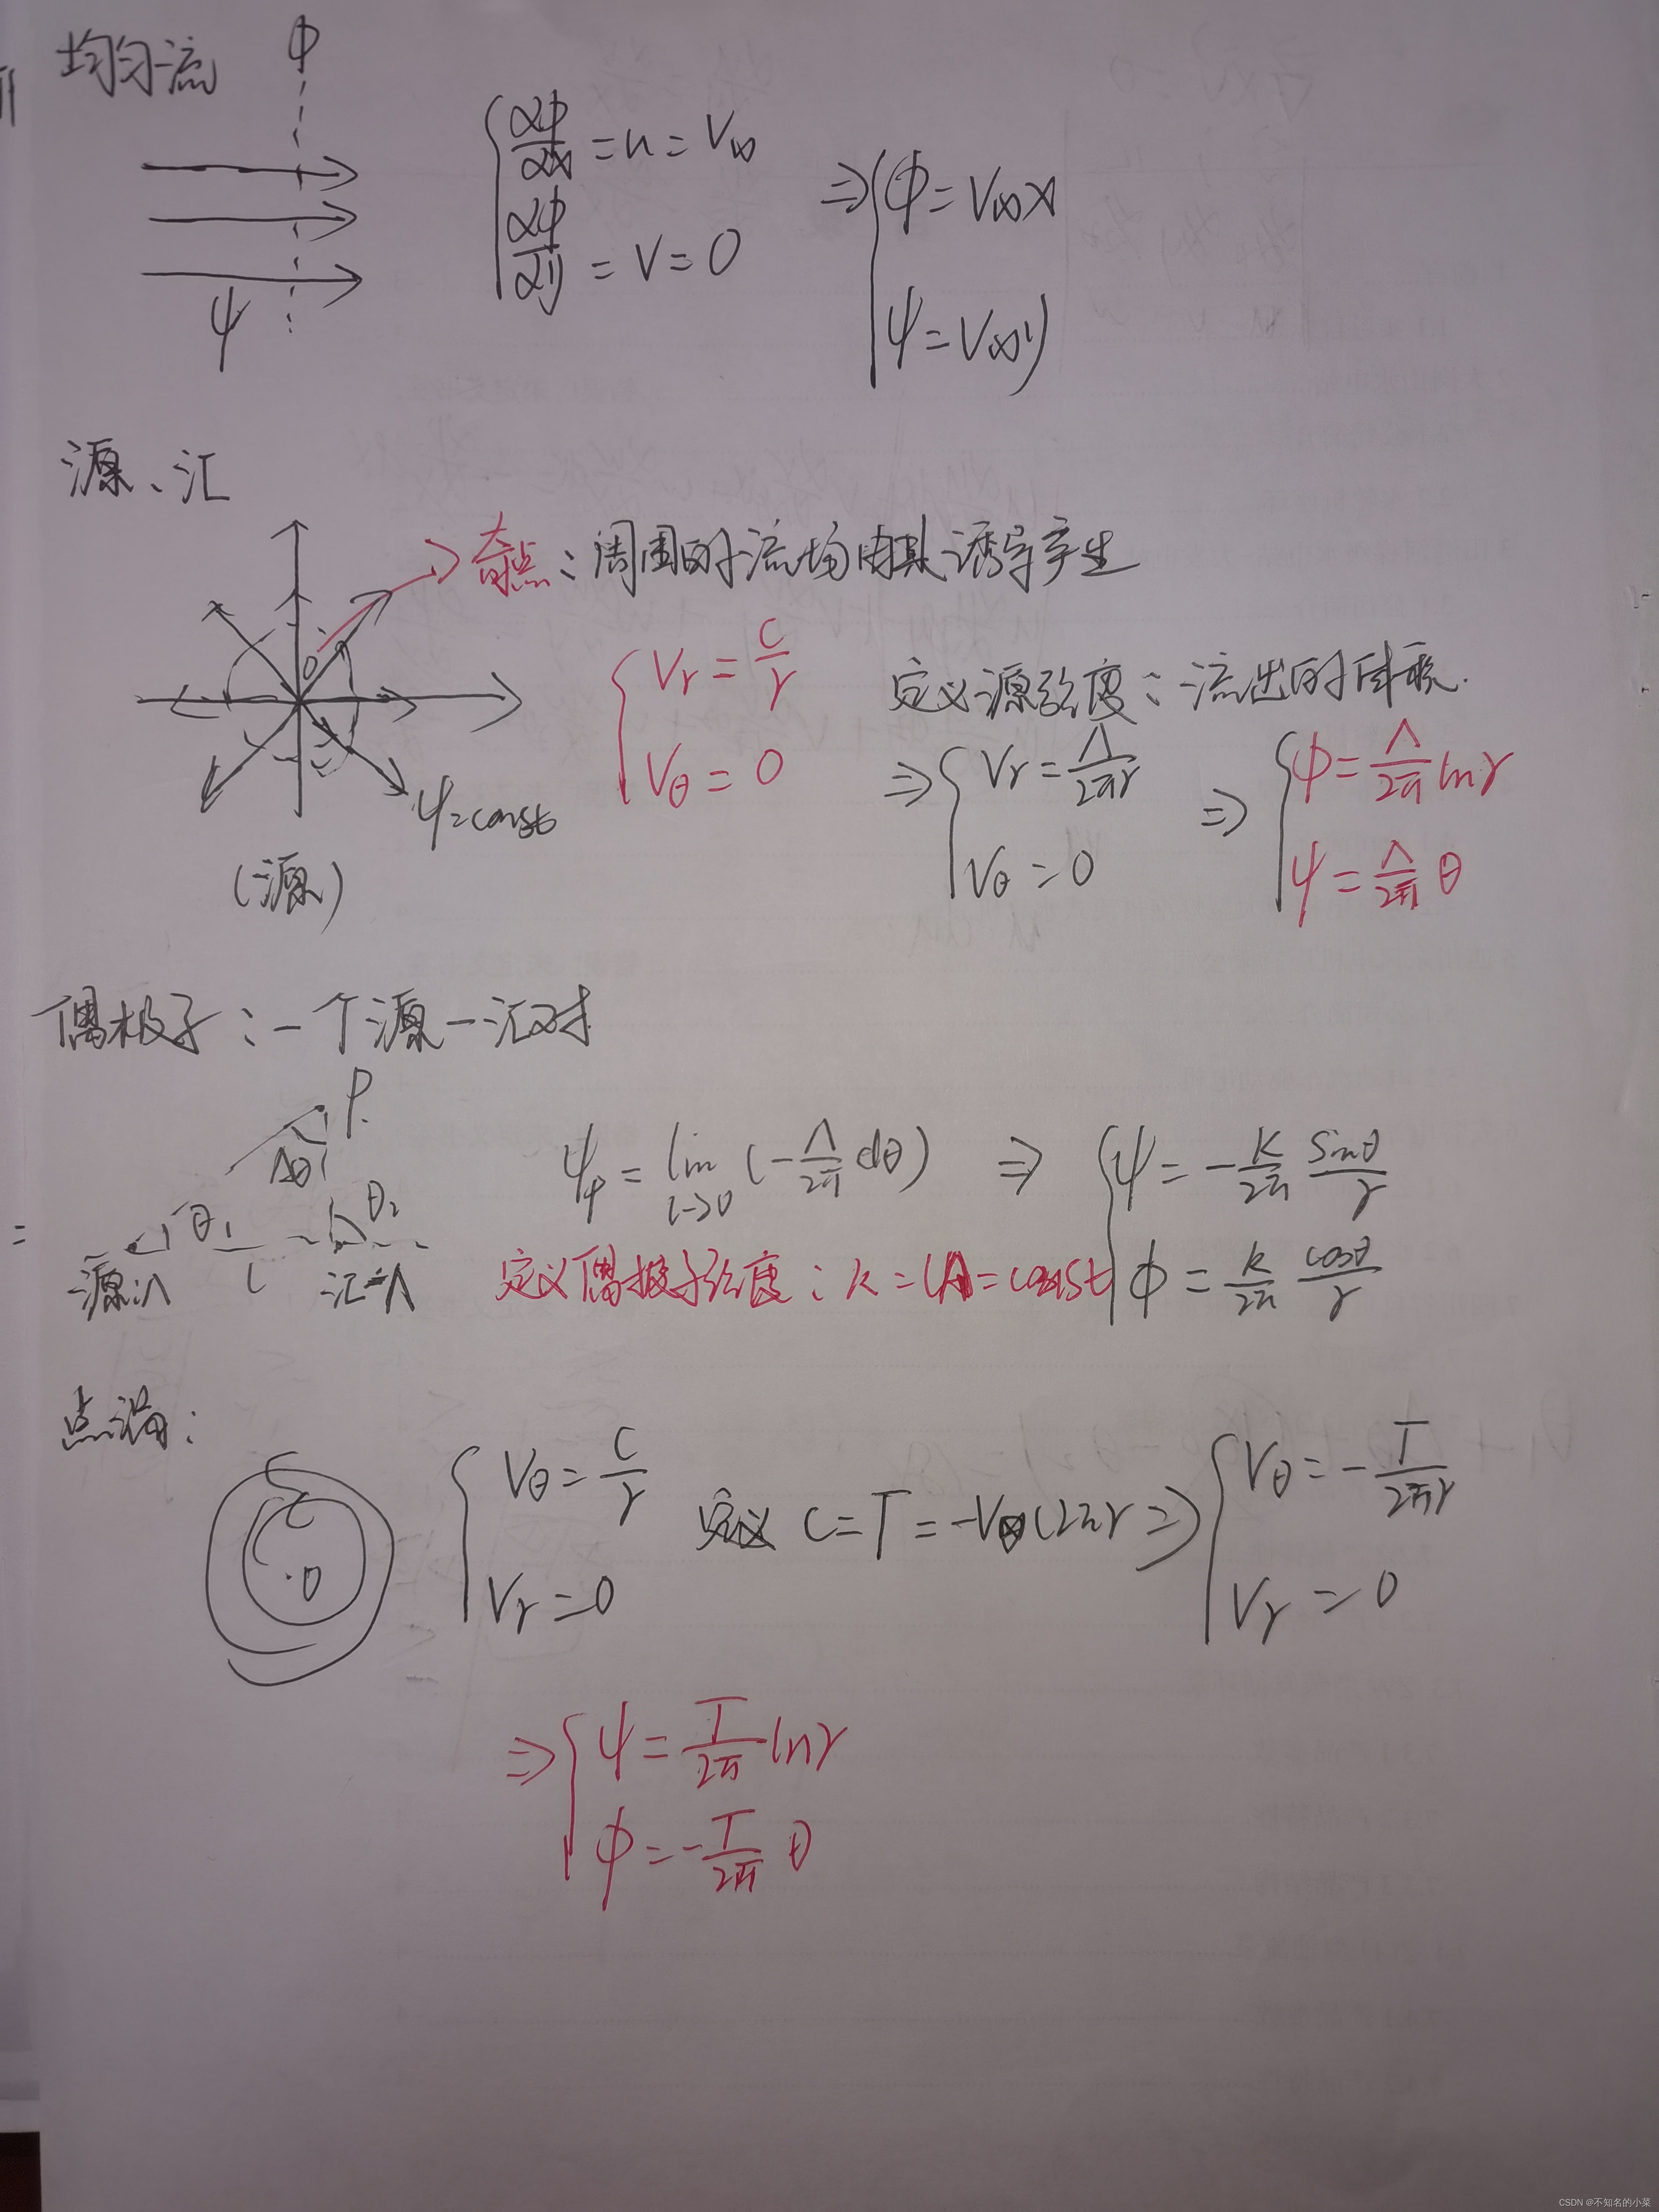 均匀流 φ
ψ
∂φ/∂x = u = V∞
∂φ/∂y = v = 0
⇒ φ = V∞x
ψ = V∞y
源、汇
奇点：周围的流场由其诱导产生
O
Vr = c/r
Vθ = 0
定义源强度：流出的体积.
⇒ Vr = Λ/2πr
Vθ = 0
⇒ φ = Λ/2π ln r
ψ = Λ/2π θ
ψ=const
(源)
偶极子：一个源一汇对
P
Δθ
θ1 θ2
源:Λ l 汇-Λ
ψp = lim l->0 (-Λ/2π dθ) ⇒ ψ = -K/2π sinθ/r
定义偶极子强度：K = lΛ = const
φ = K/2π cosθ/r
点涡：
O
Vθ = c/r
Vr = 0
定义 C = Γ = -Vθ(2πr ⇒ Vθ = -Γ/2πr
Vr = 0
⇒ ψ = Γ/2π ln r
φ = -Γ/2π θ
CSDN @不知名的小菜